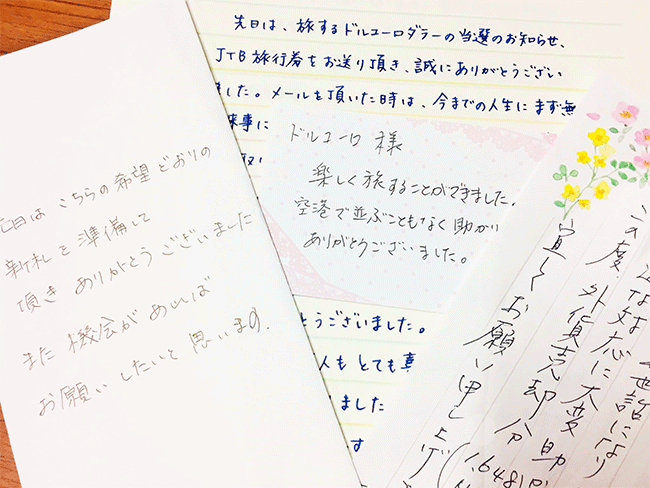 先日は、旅するドルユーロダラーの当選のお知らせ、
JTB旅行券をお送り頂き、誠にありがとうござい
ました。メールを頂いた時は、今までの人生にまず無
来事に
とうございました。
人も とても真
ました
す
日は こちらの希望 どおりの
新札を準備して
頂き ありがとうございました
また 機会があれば
お願い したいと 思います。
ドルユーロ 様
楽しく旅することができました。
空港で並ぶこともなく助かり
ありがとうございました。
世話になり
な対応に大変助
この度 外貨売却分
宜しくお願い申し上げ